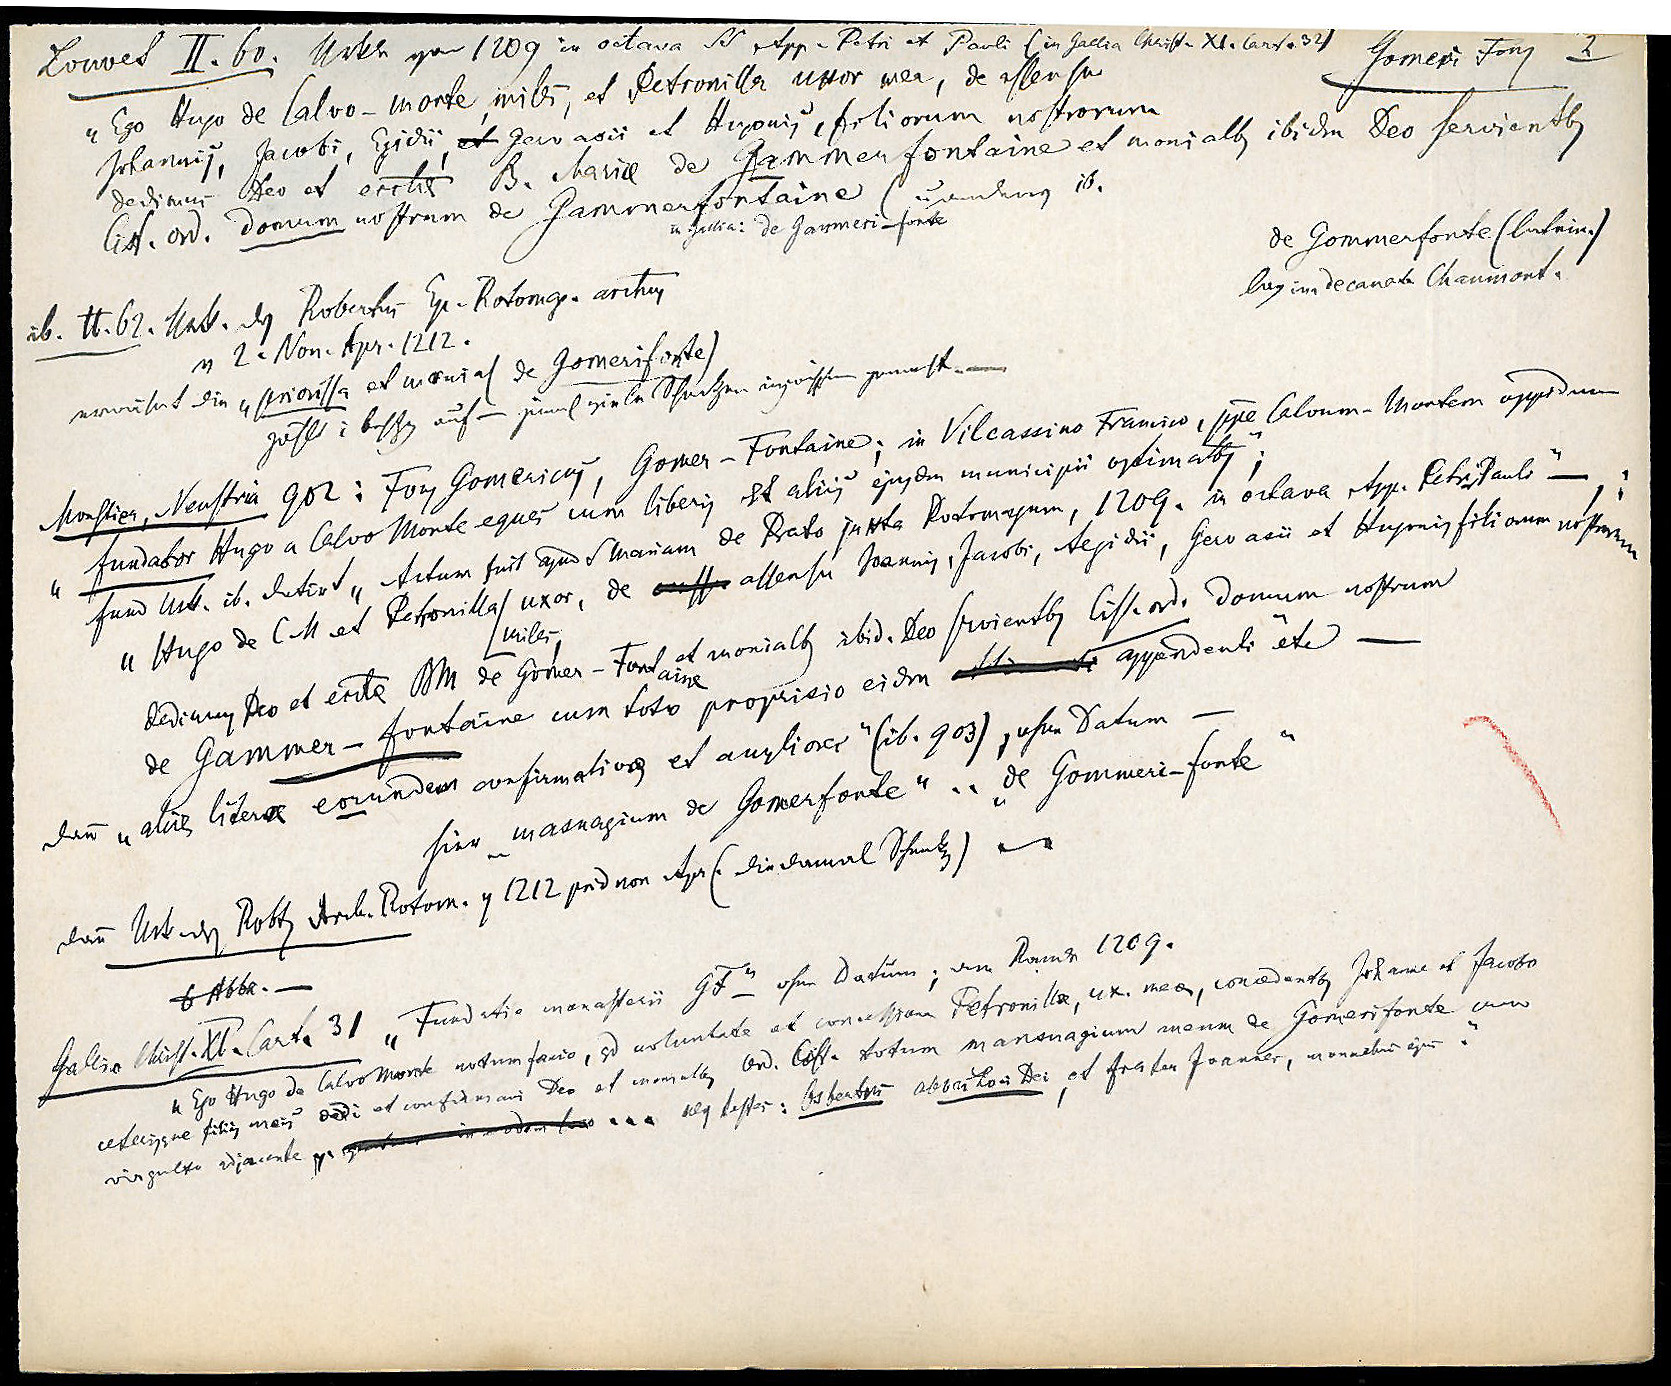 Louvet II. 60. Urk von 1209 in octava SS App. Petri et Pauli (in Gallia Christ. XI. Cart. 32) Gomeri Fons 2
"Ego Hugo de Calvo-monte, miles, et Petronilla uxor mea, de assensu
Johannis, Jacobi, Egidii, et Gervasii et Hugonis, filiorum nostrorum
dedimus Deo et eccles B. Mariæ de Gammerfontaine et monialb ibidm Deo servientb
Cist. ord. domum nostrum de Gammerfontaine (
in Gallia: de Gammeri-fonte
de Gommerfonte (latein.)
lag im decanate Chaumont.
ib. II. 62. Urk. des Robertus Ep. Rotomag. archiep
v 2. Non. Apr. 1212.
erwähnt die "priorissa et monial de Gomerifonte)
zählt i auf —
Monstier, Neustria 902: Fons Gomericus, Gomer-Fontaine; in Vilcassino Francico, ppe Calvum-Montem oppidum
" fundator Hugo a Calvo Monte eques cum liberis et aliis ejusdm municipii optimatb";
fund Urk. ib. datirt "Actum fuit apud S Mariam de Prato juxta Rotomagum, 1209. in octava App. Petri Pauli" —, :
" Hugo de C M et Petronilla uxor, de assensu Joannis, Jacobi, Aegidii, Gervasii et Hugonis filiorum nostrorum
miles,
dedimus Deo et eccle BM de Gomer-Fontaine et monialb ibid. Deo servientb Cist. ord. domum nostrum
de Gammer-fontaine cum toto proprisio eidm appendenti" etc —
dann "aliæ literæ eorundem confirmativæ et ampliores" (ib. 903), ohne Datum —
hier "masnagium de Gomerfonte" .. "de Gommeri-fonte"
dann Urk. des Robts Arch. Rotom. v 1212 prid non Apr (. die damal Schenkg) —
6 Abba. —
Gallia Christ. XI. Cart. 31 "Fundatio monasterii GF" — ohne Datum; am Rande 1209.
"Ego Hugo de Calvo Monte notum facio, qd voluntate et concessione Petronillæ, ux. meæ, concedentb Johanne et Jacobo
ceterisque filiis meis dedi et confirmavi Deo et monialb Ord. Cist. totum mansnagium meum de Gomerifonte cum
virgulto adjacente ... testes: Osbertus abbas Loci Dei, et frater Joannes, monachus ejus".